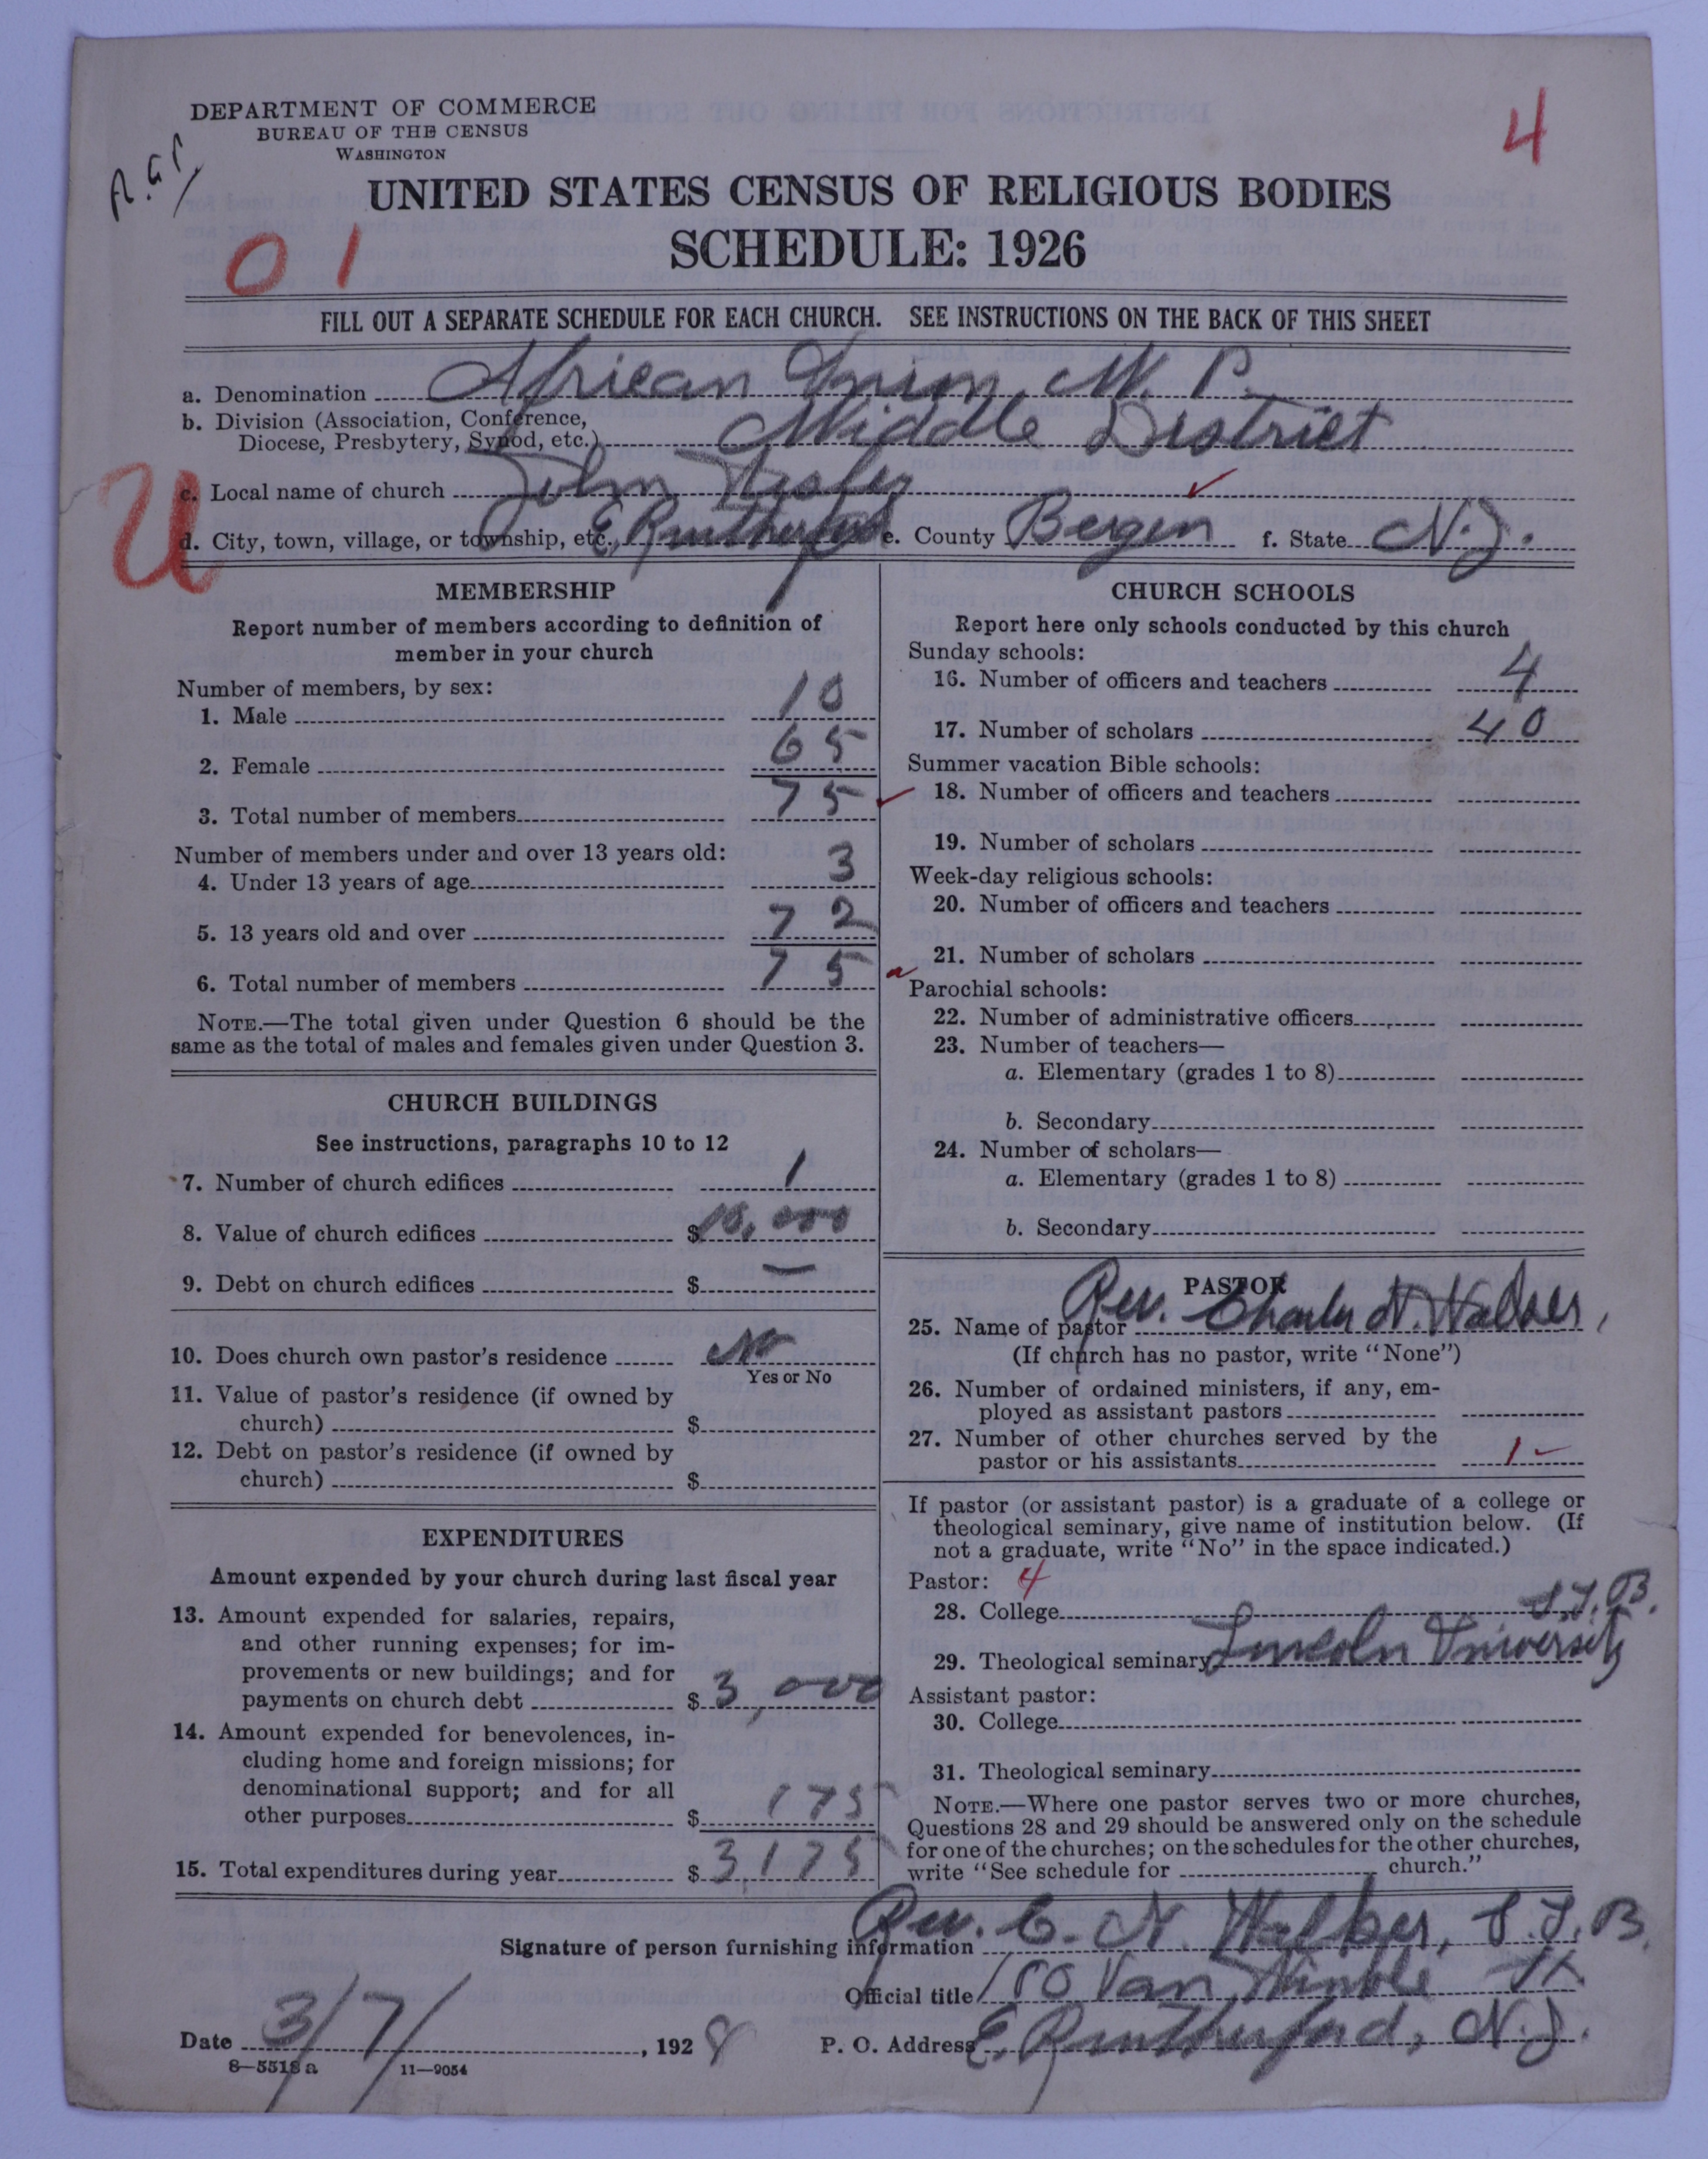 DEPARTMENT OF COMMERCE
BUREAU OF THE CENSUS
WASHINGTON
4
UNITED STATES CENSUS OF RELIGIOUS BODIES
SCHEDULE: 1926
0 1
FILL OUT A SEPARATE SCHEDULE FOR EACH CHURCH. SEE INSTRUCTIONS ON THE BACK OF THIS SHEET
a. Denomination African Union M. P.
b. Division (Association, Conference,
Diocese, Presbytery, Synod, etc.) Middle District
U
c. Local name of church John Wesley
d. City, town, village, or township, etc. E. Rutherford e. County Bergen f. State N. J.
MEMBERSHIP
Report number of members according to definition of
member in your church
Number of members, by sex:
1. Male 10
2. Female 65
3. Total number of members 75
Number of members under and over 13 years old:
4. Under 13 years of age 3
5. 13 years old and over 72
6. Total number of members 75
NOTE.—The total given under Question 6 should be the
same as the total of males and females given under Question 3.
CHURCH BUILDINGS
See instructions, paragraphs 10 to 12
7. Number of church edifices 1
8. Value of church edifices $10,000
9. Debt on church edifices $ —
10. Does church own pastor's residence No
Yes or No
11. Value of pastor's residence (if owned by
church) $
12. Debt on pastor's residence (if owned by
church) $
EXPENDITURES
Amount expended by your church during last fiscal year
13. Amount expended for salaries, repairs,
and other running expenses; for im-
provements or new buildings; and for
payments on church debt $ 3,000
14. Amount expended for benevolences, in-
cluding home and foreign missions; for
denominational support; and for all
other purposes $ 175
15. Total expenditures during year $ 3,175
CHURCH SCHOOLS
Report here only schools conducted by this church
Sunday schools:
16. Number of officers and teachers 4
17. Number of scholars 40
Summer vacation Bible schools:
18. Number of officers and teachers
19. Number of scholars
Week-day religious schools:
20. Number of officers and teachers
21. Number of scholars
Parochial schools:
22. Number of administrative officers
23. Number of teachers—
a. Elementary (grades 1 to 8)
b. Secondary
24. Number of scholars—
a. Elementary (grades 1 to 8)
b. Secondary
PASTOR
25. Name of pastor Rev. Charles N. Walker,
(If church has no pastor, write "None")
26. Number of ordained ministers, if any, em-
ployed as assistant pastors
27. Number of other churches served by the
pastor or his assistants 1
If pastor (or assistant pastor) is a graduate of a college or
theological seminary, give name of institution below. (If
not a graduate, write "No" in the space indicated.)
Pastor: 4
28. College S.T.B.
29. Theological seminary Lincoln University
Assistant pastor:
30. College
31. Theological seminary
NOTE.—Where one pastor serves two or more churches,
Questions 28 and 29 should be answered only on the schedule
for one of the churches; on the schedules for the other churches,
write "See schedule for church."
Signature of person furnishing information Rev. C. N. Walker, S.T.B.
Official title 150 Van Winkle St.
Date 3/7/, 1928 P. O. Address E. Rutherford, N. J.
8—5518 a 11—9054